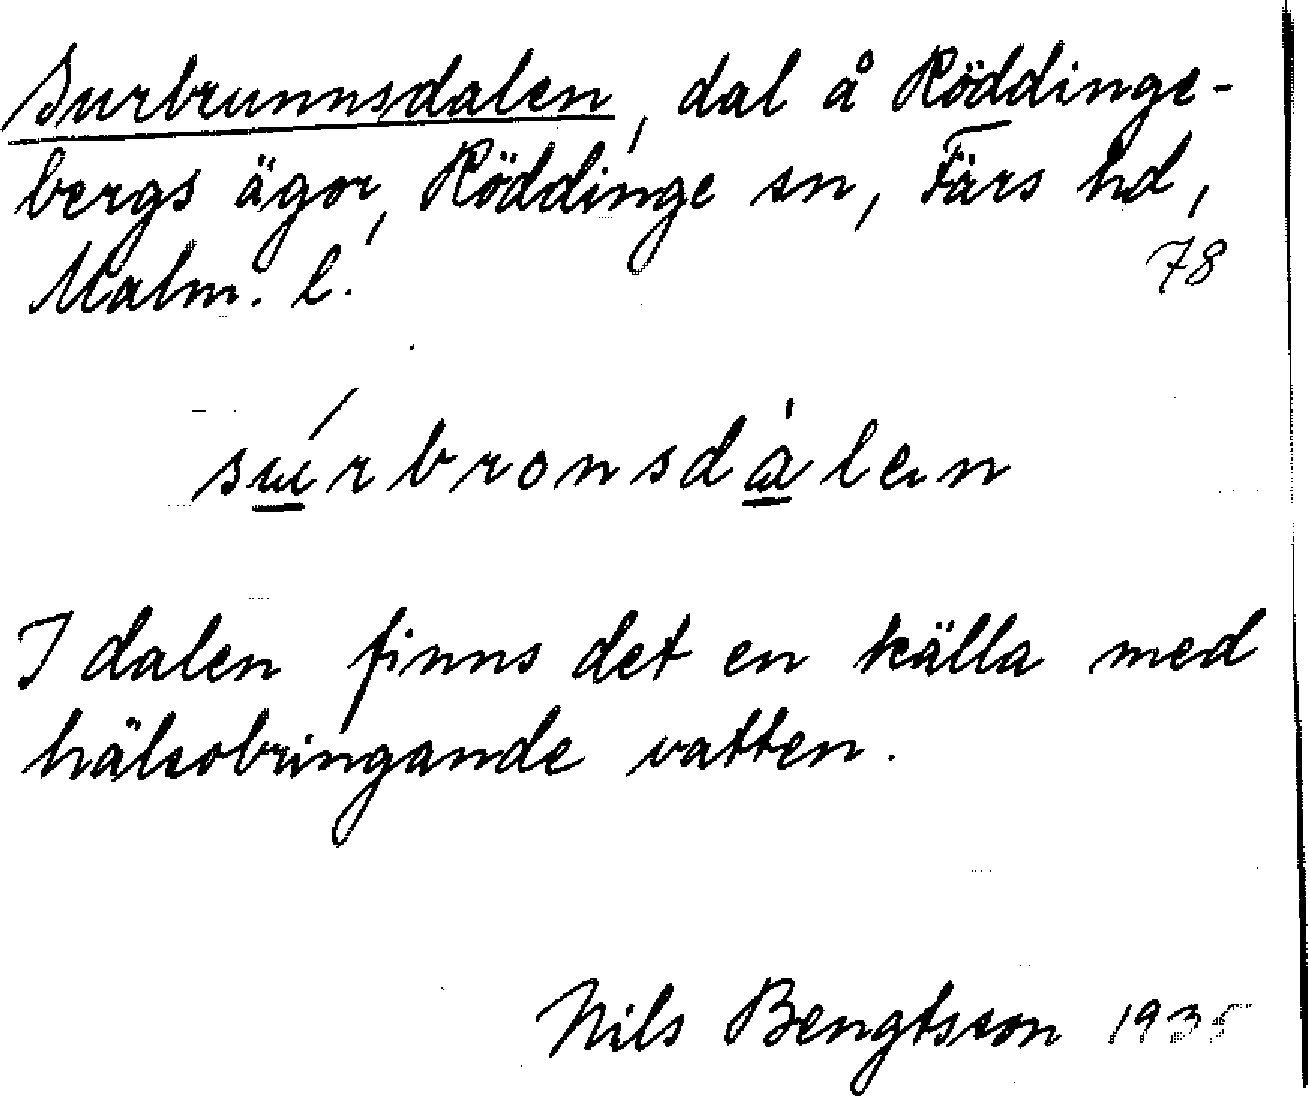 Surbrunnsdalen, dal å Röddinge-
bergs ägor, Röddinge sn, Färs hd,
Malm. l.
78
súrbronsdàlen
I dalen finns det en källa med
hälsobringande vatten.
Nils Bengtsson 1935